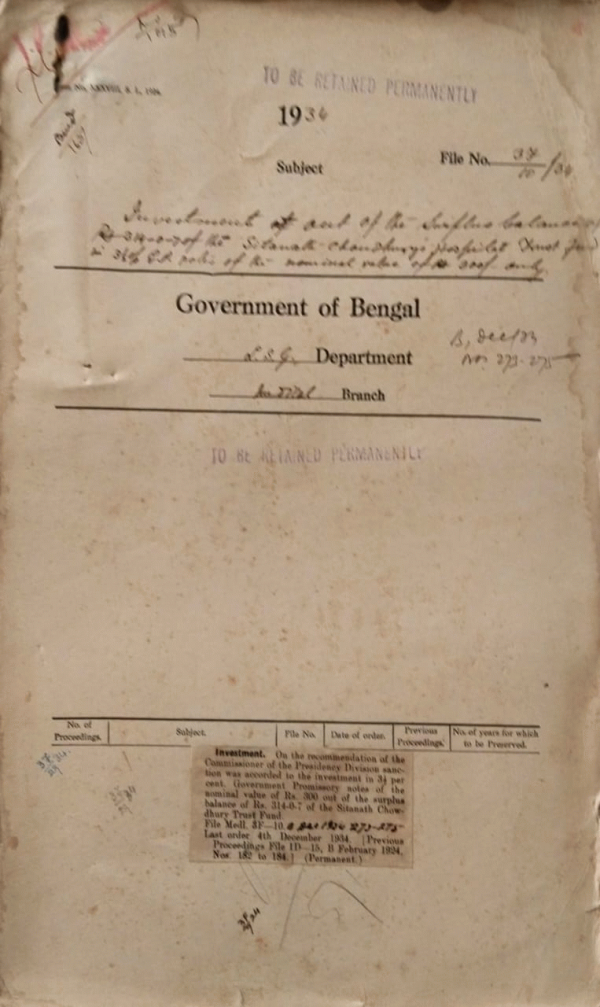 TO BE RETAINED PERMANENTLY
1934
Subject
File No. 3F/10/34
Investment out of the Surplus balance of
Rs 314-0-7 of the Sitanath Choudhury's Hospital Trust fund
in 3½% G.P. notes of the nominal value of Rs 300/- only
Government of Bengal
L.S.G. Department
B, Dec/34
Nos 273-275
Medical Branch
TO BE RETAINED PERMANENTLY
No. of Proceedings. Subject. File No. Date of order. Previous Proceedings. No. of years for which to be Preserved.
Investment. On the recommendation of the
Commissioner of the Presidency Division sanc-
tion was accorded to the investment in 3½ per
cent. Government Promissory notes of the
nominal value of Rs. 300 out of the surplus
balance of Rs. 314-0-7 of the Sitanath Chow-
dhury Trust Fund.
File Medl. 3F—10. B Dec 1934 273-275
Last order 4th December 1934. [Previous
Proceedings File 1D—15, B February 1924,
Nos. 182 to 184.] (Permanent.)